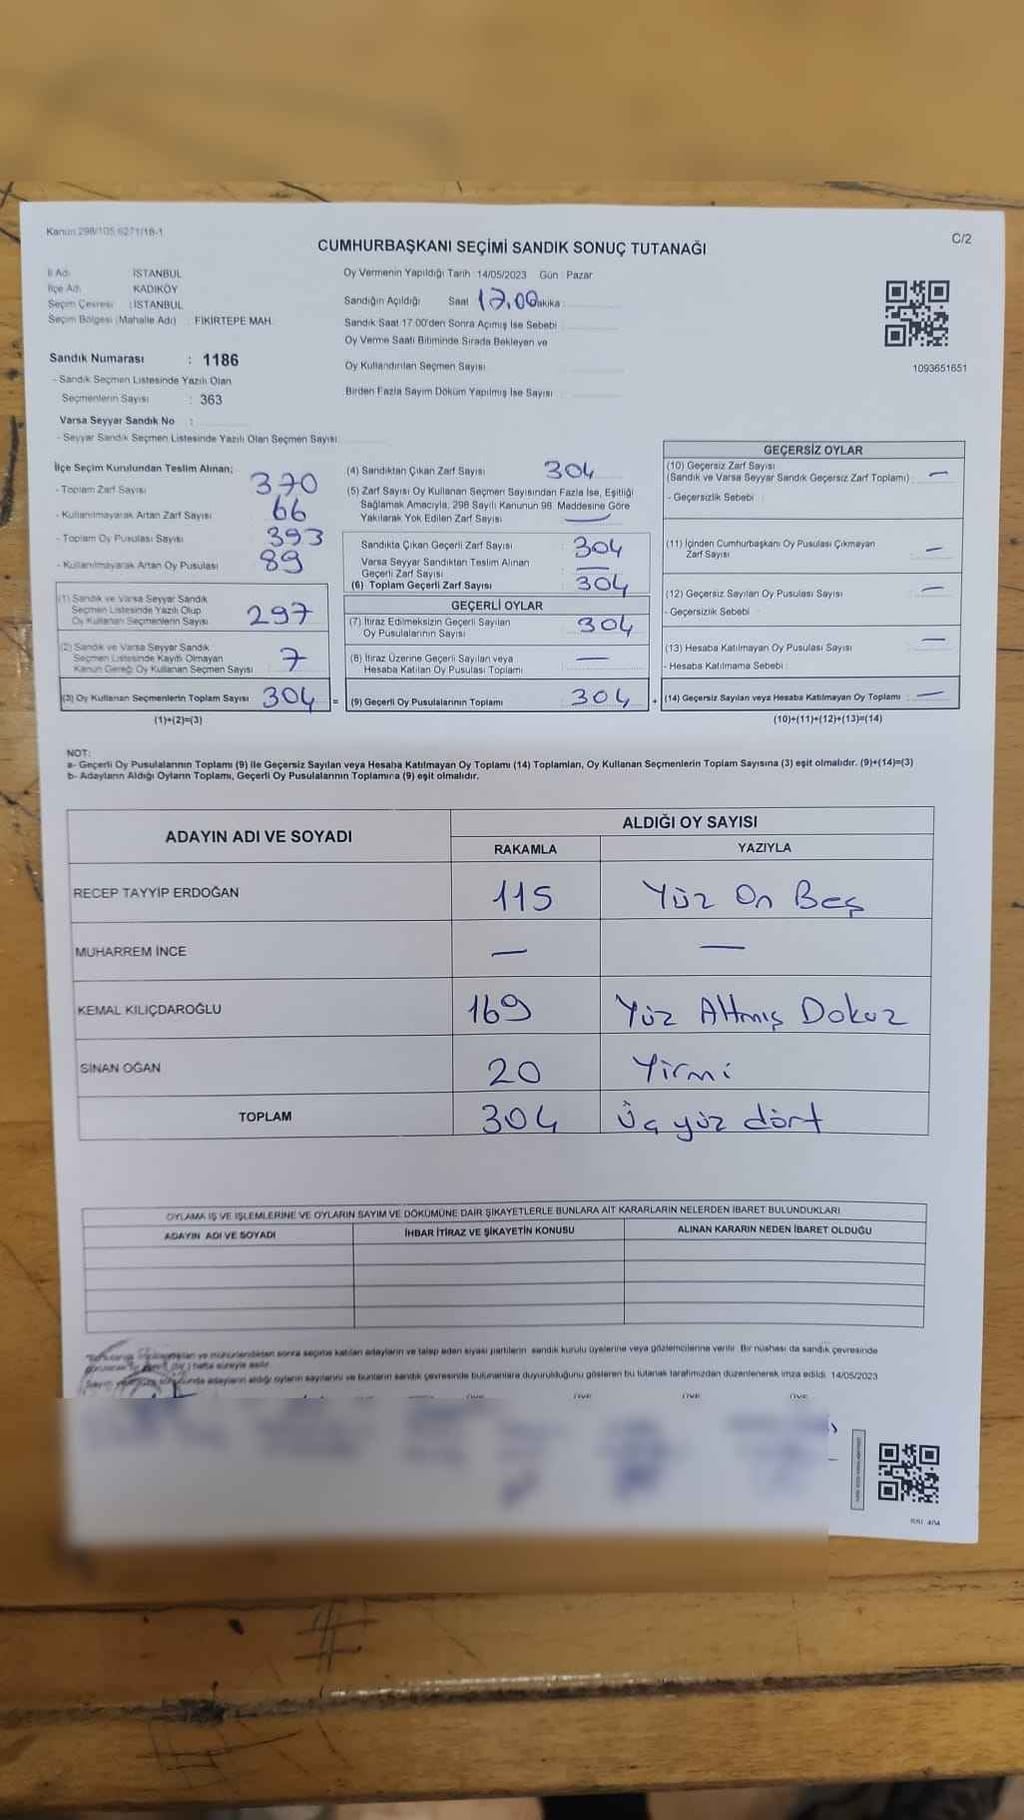 Kanun 298/105 6271/18-1
CUMHURBAŞKANI SEÇİMİ SANDIK SONUÇ TUTANAĞI
C/2
İl Adı İSTANBUL
İlçe Adı KADIKÖY
Seçim Çevresi : İSTANBUL
Seçim Bölgesi (Mahalle Adı) : FİKİRTEPE MAH.
Oy Vermenin Yapıldığı Tarih 14/05/2023 Gün : Pazar
Sandığın Açıldığı Saat 17.00 Dakika :
Sandık Saat 17.00'den Sonra Açımış İse Sebebi :
Oy Verme Saati Bitiminde Sırada Bekleyen ve
Oy Kullandırılan Seçmen Sayısı
Birden Fazla Sayım Döküm Yapılmış İse Sayısı :
1093651651
Sandık Numarası : 1186
- Sandık Seçmen Listesinde Yazılı Olan
Seçmenlerin Sayısı : 363
Varsa Seyyar Sandık No :
- Seyyar Sandık Seçmen Listesinde Yazılı Olan Seçmen Sayısı:
İlçe Seçim Kurulundan Teslim Alınan;
- Toplam Zarf Sayısı 370
- Kullanılmayarak Artan Zarf Sayısı 66
- Toplam Oy Pusulası Sayısı 393
- Kullanılmayarak Artan Oy Pusulası 89
(1) Sandık ve Varsa Seyyar Sandık
Seçmen Listesinde Yazılı Olup
Oy Kullanan Seçmenlerin Sayısı 297
(2) Sandık ve Varsa Seyyar Sandık
Seçmen Listesinde Kayıtlı Olmayan
Kanun Gereği Oy Kullanan Seçmen Sayısı 7
(3) Oy Kullanan Seçmenlerin Toplam Sayısı 304 =
(1)+(2)=(3)
(4) Sandıktan Çıkan Zarf Sayısı 304
(5) Zarf Sayısı Oy Kullanan Seçmen Sayısından Fazla İse, Eşitliği
Sağlamak Amacıyla, 298 Sayılı Kanunun 98. Maddesine Göre
Yakılarak Yok Edilen Zarf Sayısı —
Sandıkta Çıkan Geçerli Zarf Sayısı 304
Varsa Seyyar Sandıktan Teslim Alınan
Geçerli Zarf Sayısı —
(6) Toplam Geçerli Zarf Sayısı 304
GEÇERLİ OYLAR
(7) İtiraz Edilmeksizin Geçerli Sayılan
Oy Pusulalarının Sayısı 304
(8) İtiraz Üzerine Geçerli Sayılan veya
Hesaba Katılan Oy Pusulası Toplamı —
(9) Geçerli Oy Pusulalarının Toplamı 304 +
GEÇERSİZ OYLAR
(10) Geçersiz Zarf Sayısı
(Sandık ve Varsa Seyyar Sandık Geçersiz Zarf Toplamı) : —
- Geçersizlik Sebebi :
(11) İçinden Cumhurbaşkanı Oy Pusulası Çıkmayan
Zarf Sayısı —
(12) Geçersiz Sayılan Oy Pusulası Sayısı —
- Geçersizlik Sebebi :
(13) Hesaba Katılmayan Oy Pusulası Sayısı —
- Hesaba Katılmama Sebebi :
(14) Geçersiz Sayılan veya Hesaba Katılmayan Oy Toplamı : —
(10)+(11)+(12)+(13)=(14)
NOT:
a- Geçerli Oy Pusulalarının Toplamı (9) ile Geçersiz Sayılan veya Hesaba Katılmayan Oy Toplamı (14) Toplamları, Oy Kullanan Seçmenlerin Toplam Sayısına (3) eşit olmalıdır. (9)+(14)=(3)
b- Adayların Aldığı Oyların Toplamı, Geçerli Oy Pusulalarının Toplamına (9) eşit olmalıdır.
ADAYIN ADI VE SOYADI
ALDIĞI OY SAYISI
RAKAMLA YAZIYLA
RECEP TAYYİP ERDOĞAN 115 Yüz On Beş
MUHARREM İNCE — —
KEMAL KILIÇDAROĞLU 169 Yüz Altmış Dokuz
SİNAN OĞAN 20 Yirmi
TOPLAM 304 Üç yüz dört
OYLAMA İŞ VE İŞLEMLERİNE VE OYLARIN SAYIM VE DÖKÜMÜNE DAİR ŞİKAYETLERLE BUNLARA AİT KARARLARIN NELERDEN İBARET BULUNDUKLARI
ADAYIN ADI VE SOYADI İHBAR İTİRAZ VE ŞİKAYETİN KONUSU ALINAN KARARIN NEDEN İBARET OLDUĞU
ve mühürlendikten sonra seçime katılan adayların ve talep eden siyasi partilerin sandık kurulu üyelerine veya gözlemcilerine verilir. Bir nüshası da sandık çevresinde
hafta süreyle asılır.
adayların aldığı oyların sayılarını ve bunların sandık çevresinde bulunanlara duyurulduğunu gösteren bu tutanak tarafımızdan düzenlenerek imza edildi. 14/05/2023